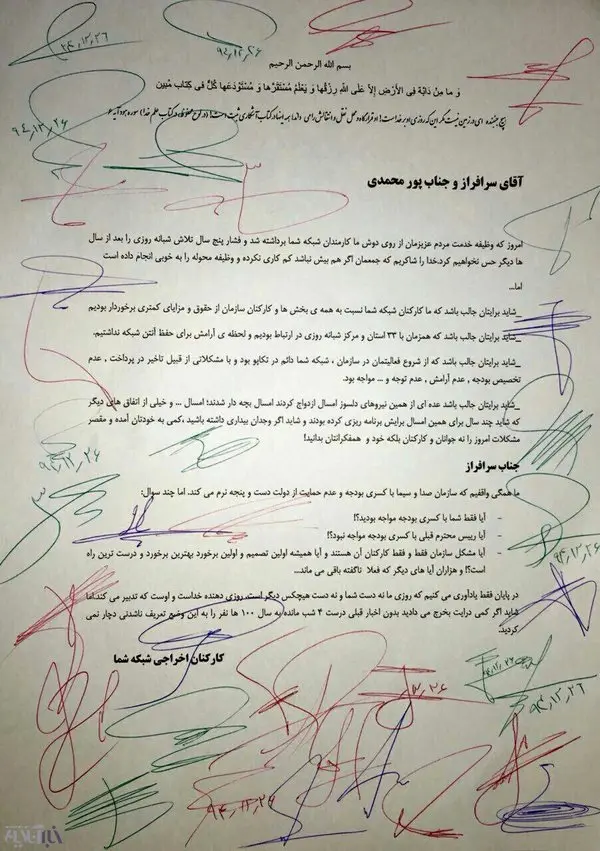 ۹۴,۱۲,۲۶
۹۴,۱۲,۲۶
بسم الله الرحمن الرحیم
وَ ما مِنْ دَابَّةٍ فِی الْأَرْضِ إِلاَّ عَلَى اللهِ رِزْقُها وَ یَعْلَمُ مُسْتَقَرَّها وَ مُسْتَوْدَعَها كُلٌّ فی كِتابٍ مُبین
هیچ جنبنده ای در زمین نیست مگر این که روزی او بر خداست! او قرارگاه و محل نقل و انتقالش را می داند؛ همه اینها در کتاب آشکاری ثبت است! (در لوح محفوظ، در کتاب علم خدا) سوره هود آیه ۶
۹۴,۱۲,۲۶
آقای سرافراز و جناب پور محمدی
امروز که وظیفه خدمت مردم عزیزمان از روی دوش ما کارمندان شبکه شما برداشته شد و فشار پنج سال تلاش شبانه روزی را بعد از سال
ها دیگر حس نخواهیم کرد،خدا را شاکریم که جمعمان اگر هم بیش نباشد کم کاری نکرده و وظیفه محوله را به خوبی انجام داده است
اما...
_شاید برایتان جالب باشد که ما کارکنان شبکه شما نسبت به همه ی بخش ها و کارکنان سازمان از حقوق و مزایای کمتری برخوردار بودیم
_شاید برایتان جالب باشد که همزمان با ۳۳ استان و مرکز شبانه روزی در ارتباط بودیم و لحظه ی آرامش برای حفظ آنتن شبکه نداشتیم.
_شاید برایتان جالب باشد که از شروع فعالیتمان در سازمان ، شبکه شما دائم در تکاپو بود و با مشکلاتی از قبیل تاخیر در پرداخت , عدم
تخصیص بودجه , عدم آرامش , عدم توجه و ... مواجه بود.
_شاید برایتان جالب باشد عده ای از همین نیروهای دلسوز امسال ازدواج کردند امسال بچه دار شدند؛ امسال ... و خیلی از اتفاق های دیگر
که شاید چند سال برای همین امسال برایش برنامه ریزی کرده بودند و شاید اگر وجدان بیداری داشته باشید ،کمی به خودتان آمده و مقصر
مشکلات امروز را نه جوانان و کارکنان بلکه خود و همفکرانتان بدانید!
جناب سرافراز
۹۴,۱۲,۲۶
ما همگی واقفیم که سازمان صدا و سیما با کسری بودجه و عدم حمایت از دولت دست و پنجه نرم می کند. اما چند سوال:
- آیا فقط شما با کسری بودجه مواجه بودید؟!
- آیا رییس محترم قبلی با کسری بودجه مواجه نبود؟!
- آیا مشکل سازمان فقط و فقط کارکنان آن هستند و آیا همیشه اولین تصمیم و اولین برخورد بهترین برخورد و درست ترین راه
است؟! و هزاران آیا های دیگر که فعلا ناگفته باقی می ماند...
۹۴,۱۲,۲۶
در پایان فقط یادآوری می کنیم که روزی ما نه دست شما و نه دست هیچکس دیگر است، روزی دهنده خداست و اوست که تدبیر می کند.اما
شاید اگر کمی درایت بخرج می دادید بدون اخبار قبلی درست ۴ شب مانده به سال ۱۰۰ ها نفر را به این وضع تعریف ناشدنی دچار نمی
کردید.
کارکنان اخراجی شبکه شما
۹۴,۱۲,۲۶
۹۴,۱۲,۲۶
خبرآنلاین